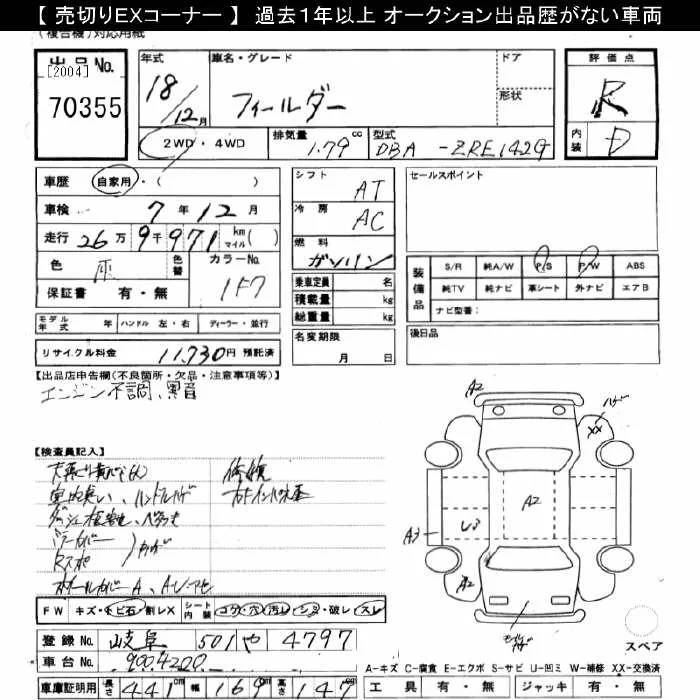 【 売切りEXコーナー 】 過去1年以上 オークション出品歴がない車両
(複合機)対応用紙
出品No.
[2004]
70355
年式
18/12月
車名・グレード
フィールダー
ドア
形状
評価点
R
内装
D
2WD・4WD
排気量
1.79cc
型式
DBA-ZRE142G
車歴 自家用・( )
車検 7年12月
走行 26万9千971 km マイル( )
色 灰 色替
カラーNo. 1F7
保証書 有・無
シフト AT
冷房 AC
燃料 ガソリン
乗車定員 名
積載量 kg
総重量 kg
セールスポイント
装備品
S/R 純A/W P/S P/W ABS
純TV 純ナビ 革シート 外ナビ エアB
ナビ型番:
モデル年式 年 ハンドル 左・右 ディーラー・並行
名変期限
月 日
後日品
リサイクル料金 11,730円 預託済
【出品店申告欄(不良箇所・欠品・注意事項等)】
エンジン不調、異音
【検査員記入】
ハンドル
ホイールカバーA
A2
ハゲ
XX
A2
A3
U3
A2
FW キズ・トビ石・割レX シート内装 コゲ・穴・汚レ・シミ・破レ・スレ
登録No. 岐阜 501 や 4797
車台No. 9004200
スペア
A-キズ C-腐食 E-エクボ S-サビ U-凹ミ W-補修 XX-交換済
車庫証明用 長さ 441cm 幅 169cm 高さ 147cm
工具 有・無 ジャッキ 有・無